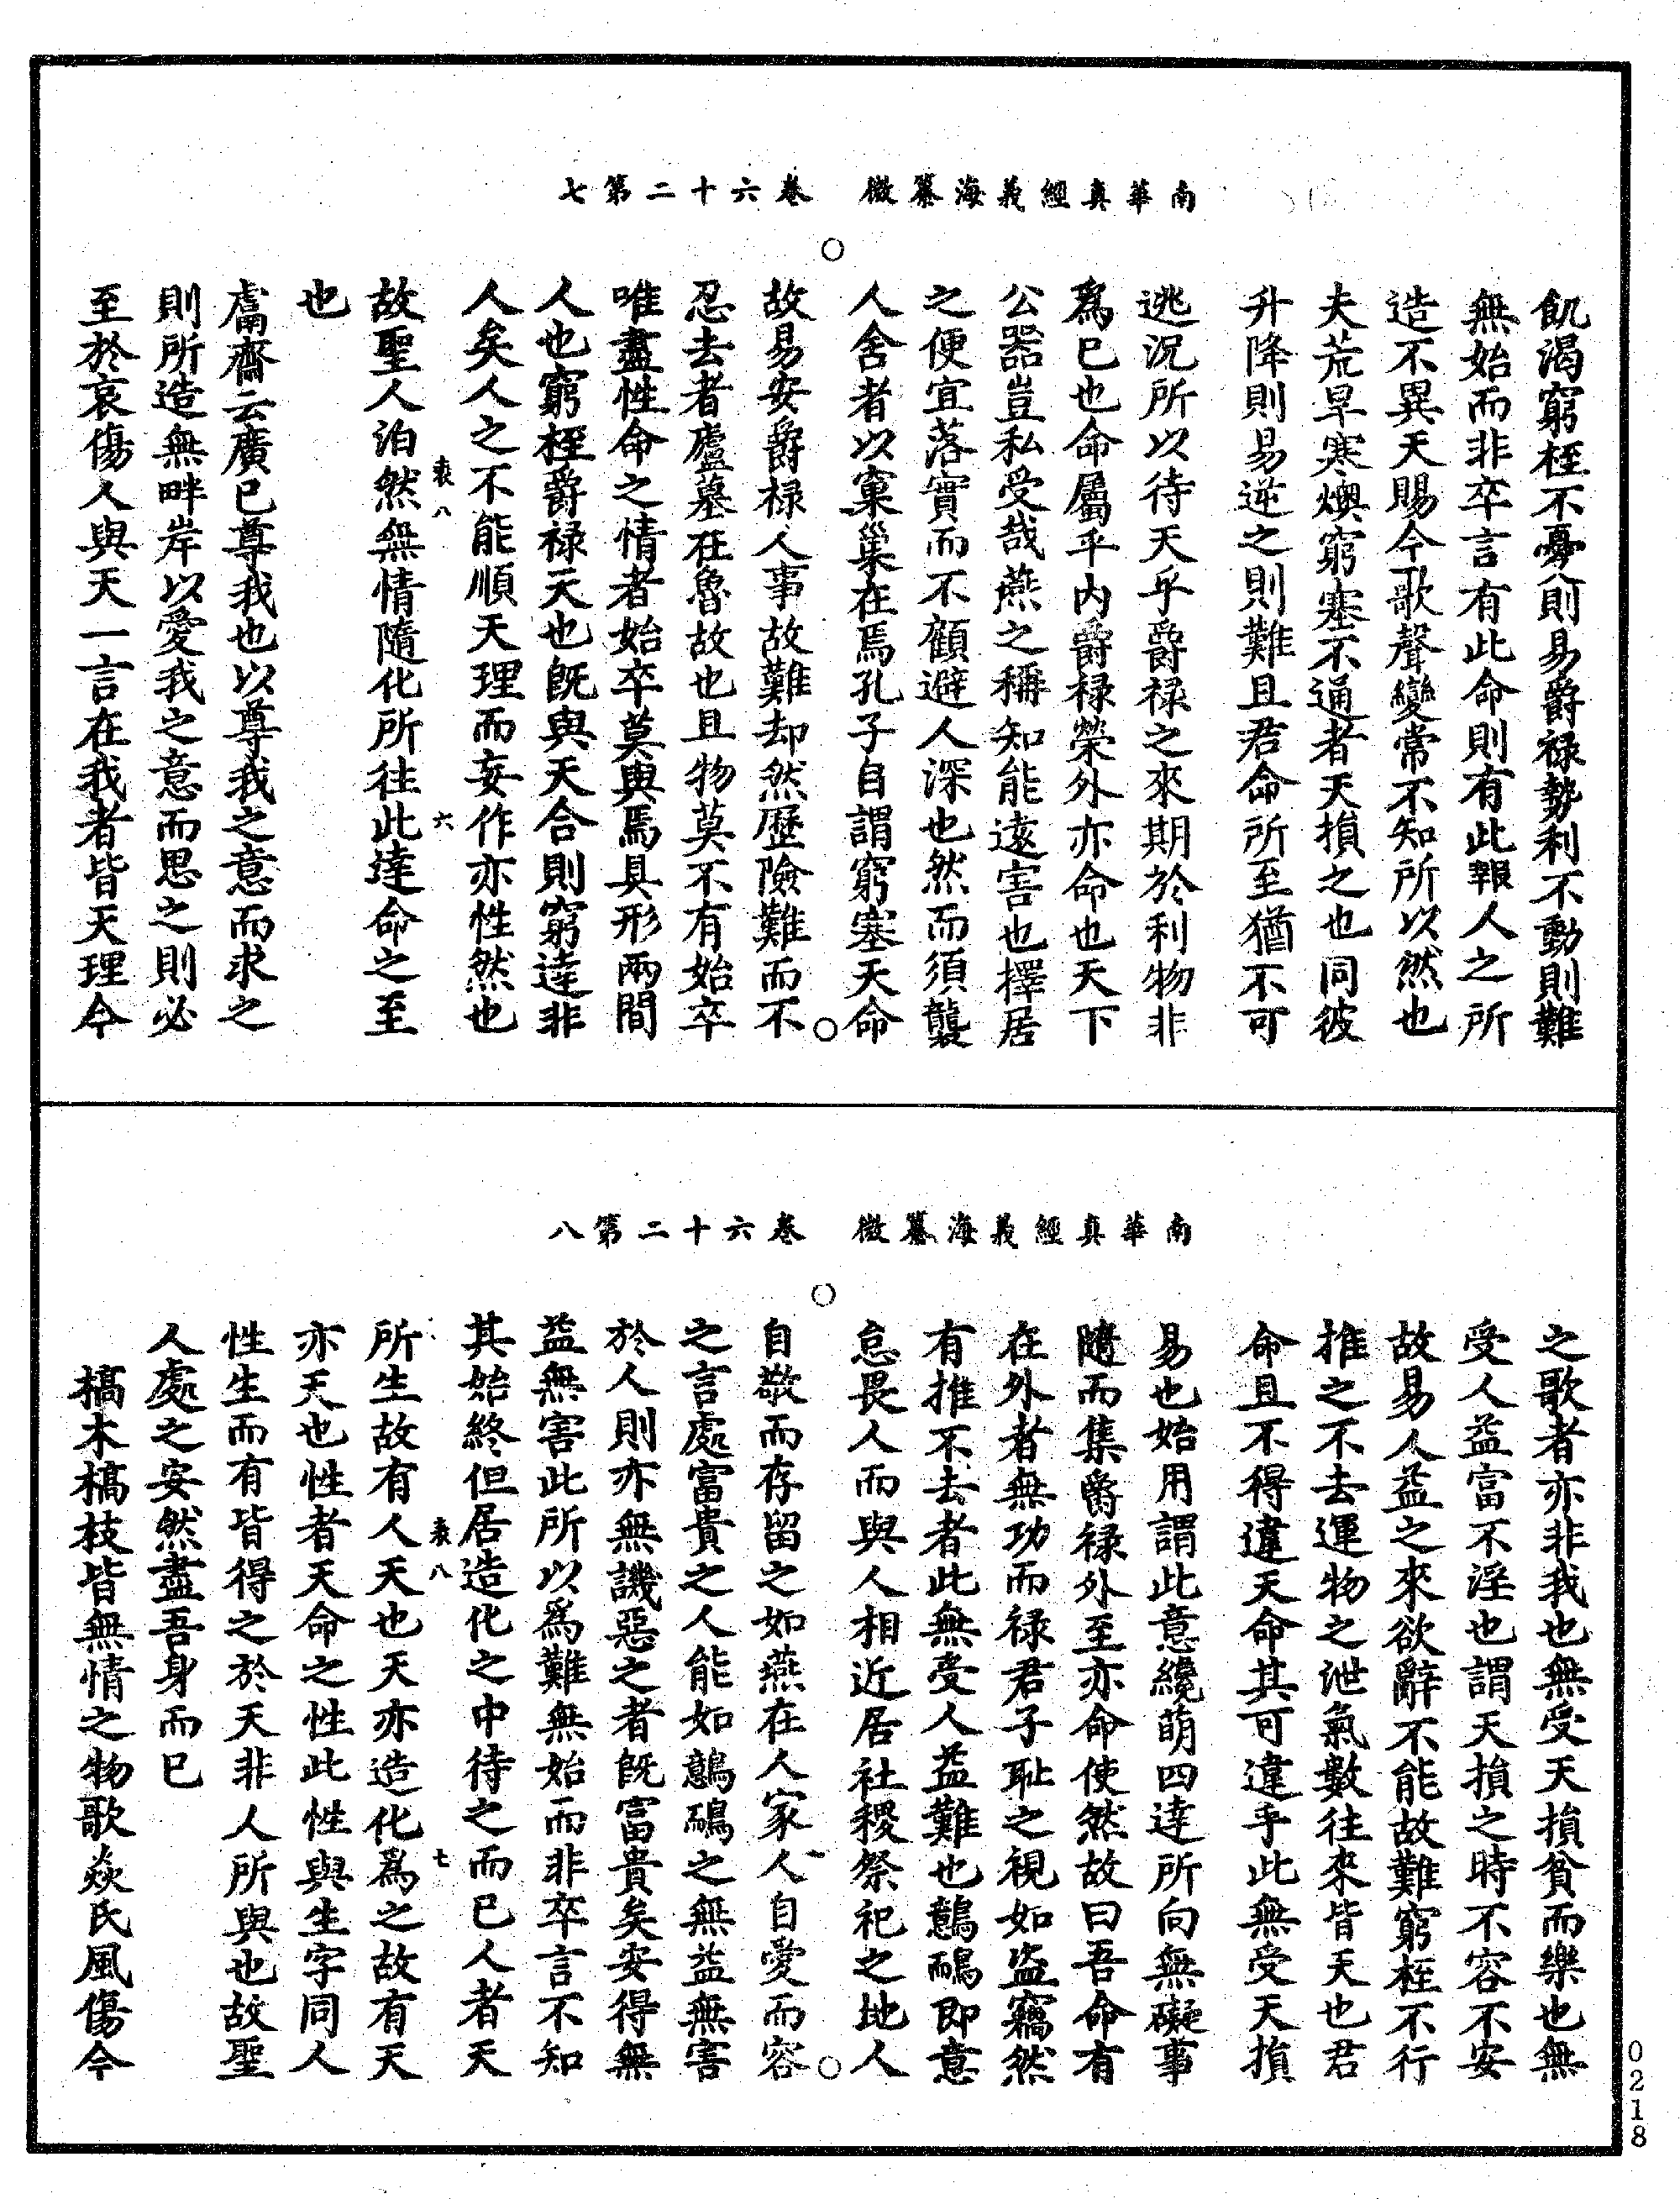 南華真經義海纂微　卷六十二第七
飢渴窮桎不憂則易爵禄勢利不動則難
無始而非卒言有此命則有此報人之所
造不異天賜今歌聲變常不知所以然也
夫荒旱寒燠窮塞不通者天損之也同彼
升降則易逆之則難且君命所至猶不可
逃況所以待天乎爵禄之來期於利物非
爲已也命屬乎内爵禄榮外亦命也天下
公器豈私受哉燕之稱知能遠害也擇居
之便宜落實而不顧避人深也然而須襲
人舍者以窠巢在焉孔子自謂窮塞天命
故易安爵禄人事故難却然歷險難而不
忍去者廬墓在魯故也且物莫不有始卒
唯盡性命之情者始卒莫與焉具形兩間
人也窮桎爵禄天也既與天合則窮達非
人矣人之不能順天理而妄作亦性然也
裘八　六
故聖人泊然無情隨化所往此達命之至
也
鬳齋云廣已尊我也以尊我之意而求之
則所造無畔岸以愛我之意而思之則必
至於哀傷人與天一言在我者皆天理今
南華真經義海纂微　卷六十二第八
之歌者亦非我也無受天損貧而樂也無
受人益富不淫也謂天損之時不容不安
故易人益之來欲辭不能故難窮桎不行
推之不去運物之泄氣數往來皆天也君
命且不得違天命其可違乎此無受天損
易也始用謂此意纔萌四達所向無礙事
隨而集爵禄外至亦命使然故曰吾命有
在外者無功而禄君子恥之視如盜竊然
有推不去者此無受人益難也鷾鴯即意
怠畏人而與人相近居社稷祭祀之地人
自敬而存留之如燕在人家人自愛而容
之言處富貴之人能如鷾鴯之無益無害
於人則亦無譏惡之者既富貴矣安得無
益無害此所以爲難無始而非卒言不知
其始終但居造化之中待之而已人者天
裘八　七
所生故有人天也天亦造化爲之故有天
亦天也性者天命之性此性與生字同人
性生而有皆得之於天非人所與也故聖
人處之安然盡吾身而已
槁木槁枝皆無情之物歌焱氏風傷今
0218